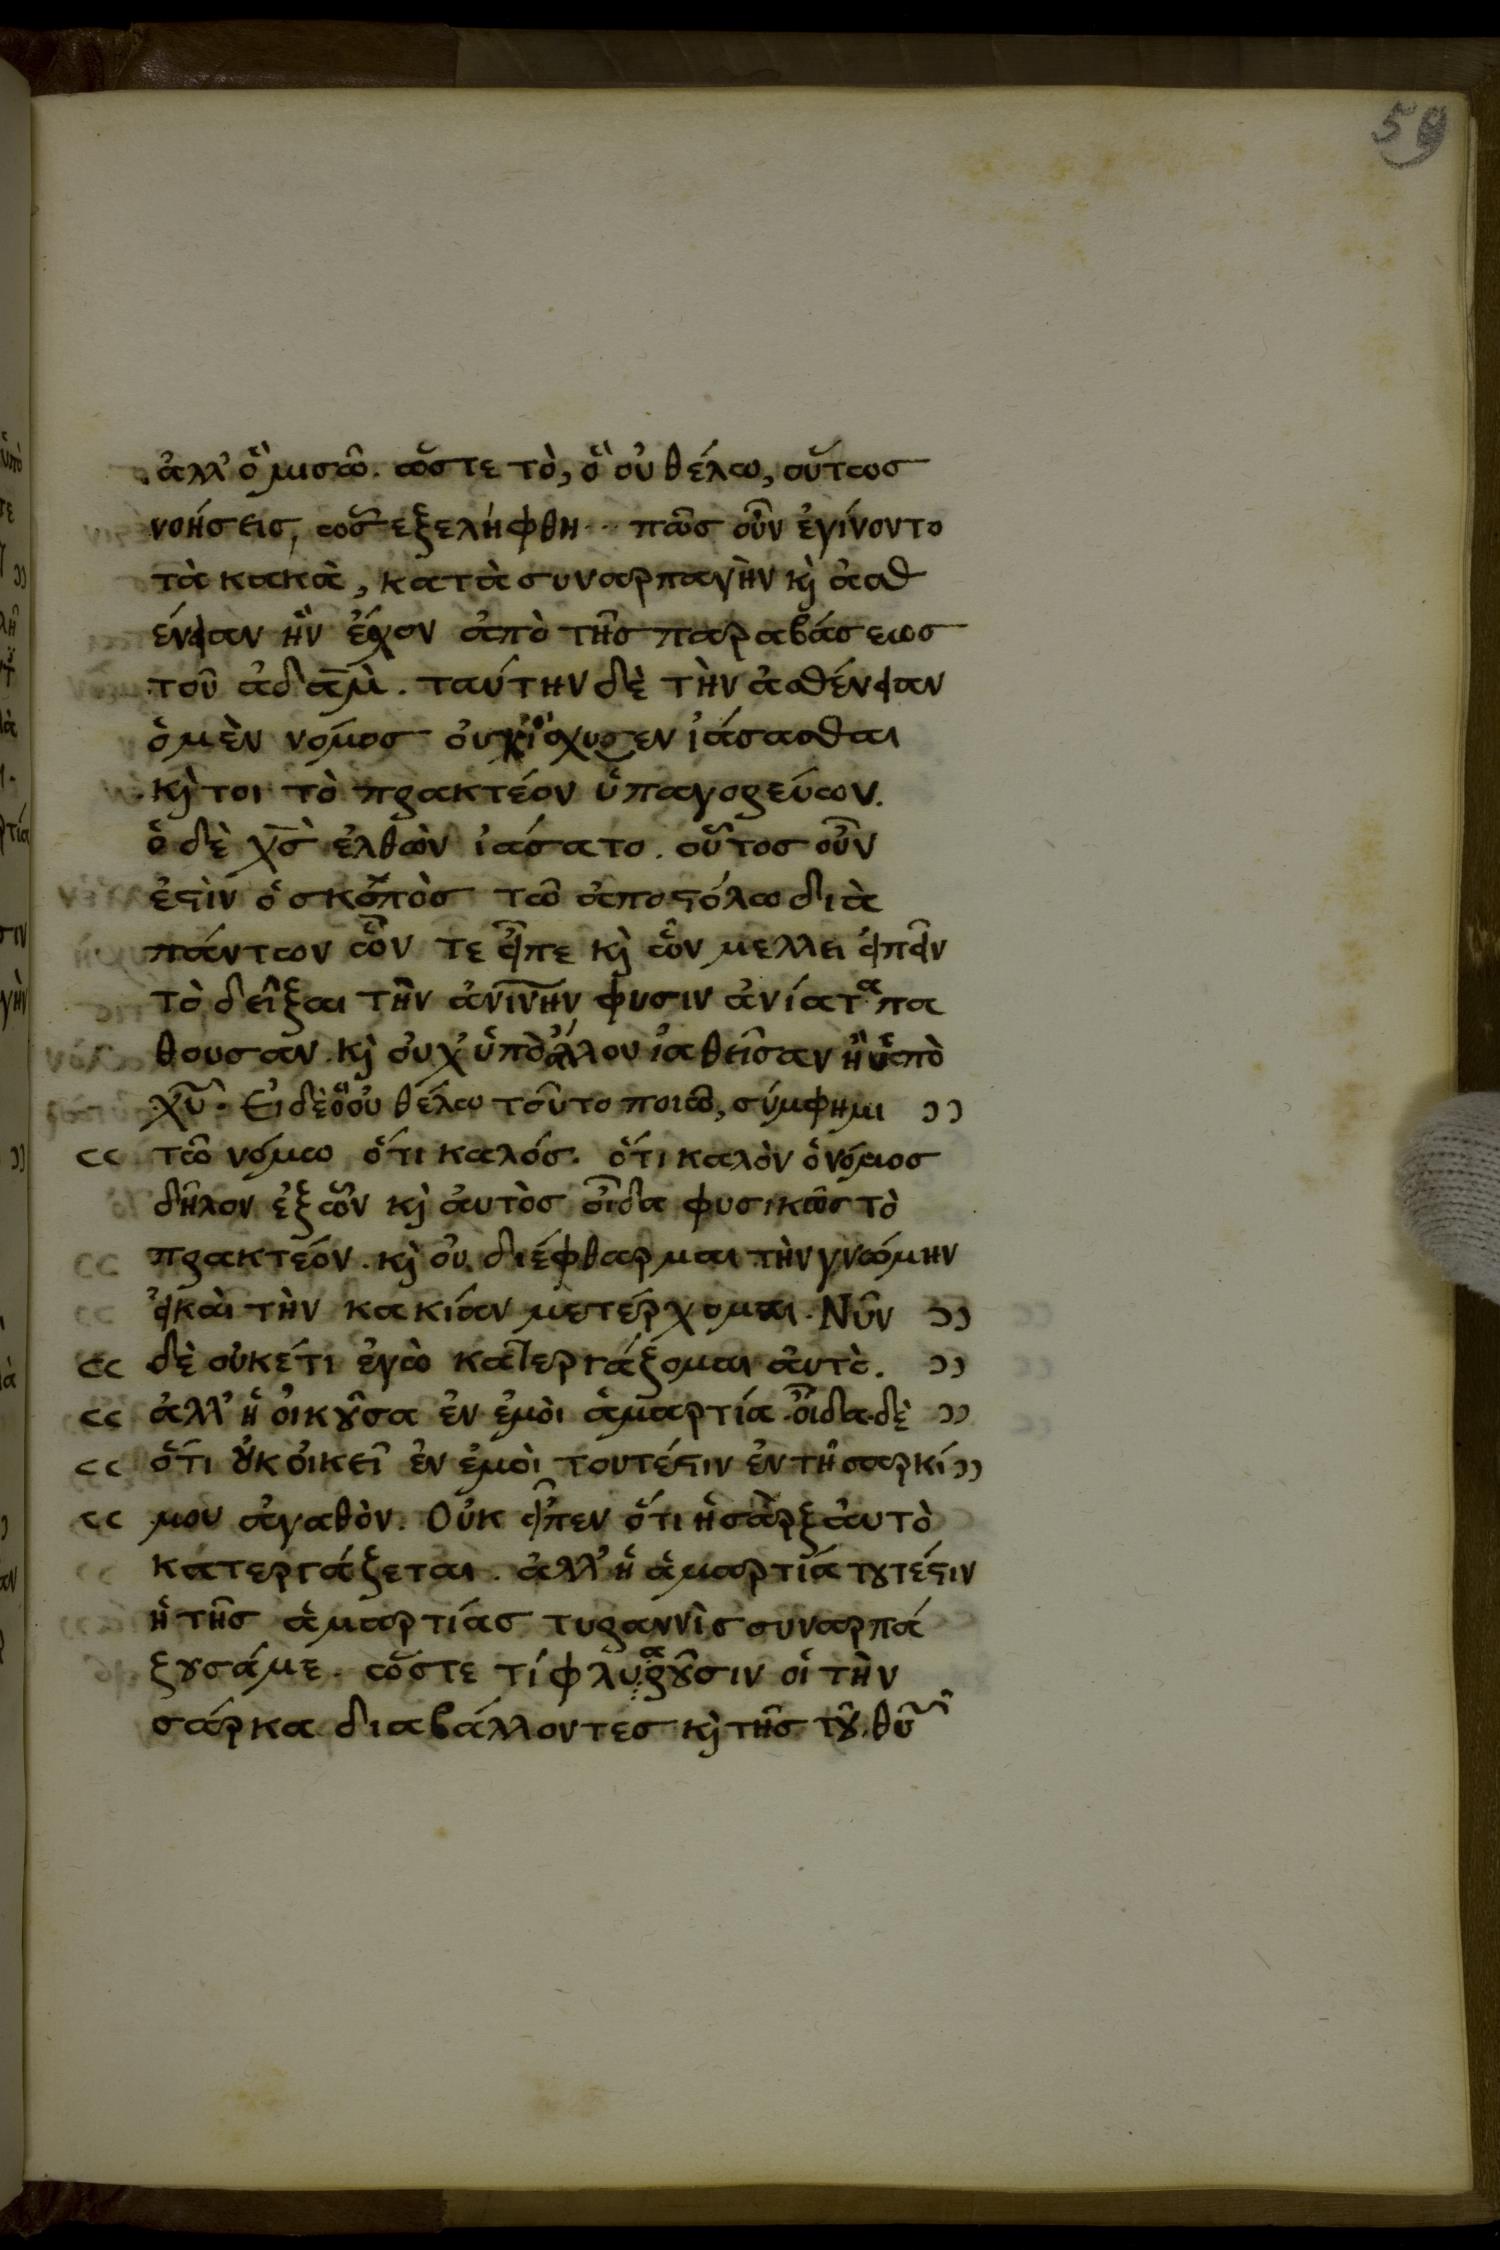 59
ἀλλ' ὃ μισῶ. ὥστε τὸ, ὃ οὐ θέλω, οὕτως
νοήσεις, ὡς ἐξελήφθη·· πῶς οὖν ἐγίνοντο
τὰ κακὰ, κατὰ συναρπαγὴν κὶ ἀσθ
ένειαν ἣν ἔσχον ἀπὸ τῆς παραβάσεως
τοῦ ἀδὰμ. ταύτην δὲ τὴν ἀσθένειαν
ὁ μὲν νόμος οὐκ ἴσχυσεν ἰάσασθαι
κὶ τοι τὸ πρακτέον ὑπαγορεύων.
ὁ δὲ χς ἐλθὼν ἰάσατο. οὗτος οὖν
ἐστὶν ὁ σκοπὸς τῶ ἀποστόλω διὰ
πάντων ὧν τε εἶπε κὶ ὧν μελλει εἰπεῖν
τὸ δεῖξαι τὴν ἀνινην φυσιν ἀνίατα πα
θουσαν. κὶ οὐχ' ὑπὸ ἄλλου ἰαθεῖσαν ἢ ὑπὸ
χυ. Εἰ δὲ ὃ οὐ θέλω τοῦτο ποιῶ, σύμφημι ››
‹‹ τῶ νόμω ὅτι καλός. ὅτι καλὸν ὁ νόμος
δῆλον ἐξ ὧν κὶ ἀυτὸς οἶδα φυσικῶς τὸ
πρακτέον. κὶ οὐ διέφθαρμαι τὴν γνώμην
εἰ καὶ τὴν κακίαν μετέρχομαι. Νῦν ››
‹‹ δὲ οὐκέτι ἐγὼ κατεργάζομαι ἀυτὸ. ››
‹‹ ἀλλ' ἡ οἰκοῦσα ἐν ἐμοὶ ἁμαρτία. οἶδα δὲ ››
‹‹ ὅτι οὐκ οἰκεῖ ἐν ἐμοὶ τουτέστιν ἐν τῆ σαρκί ››
‹‹ μου ἀγαθὸν. Οὐκ εἶπεν ὅτι ἡ σὰρξ ἀυτὸ
κατεργάζεται. ἀλλ' ἡ ἁμαρτία τουτέστιν
ἡ τῆς ἁμαρτίας τυραννὶς συναρπά
ζουσά μέ. ὥστε τί φλυαροῦσιν οἱ τὴν
σάρκα διαβάλλοντες κὶ τῆς τοῦ θυ